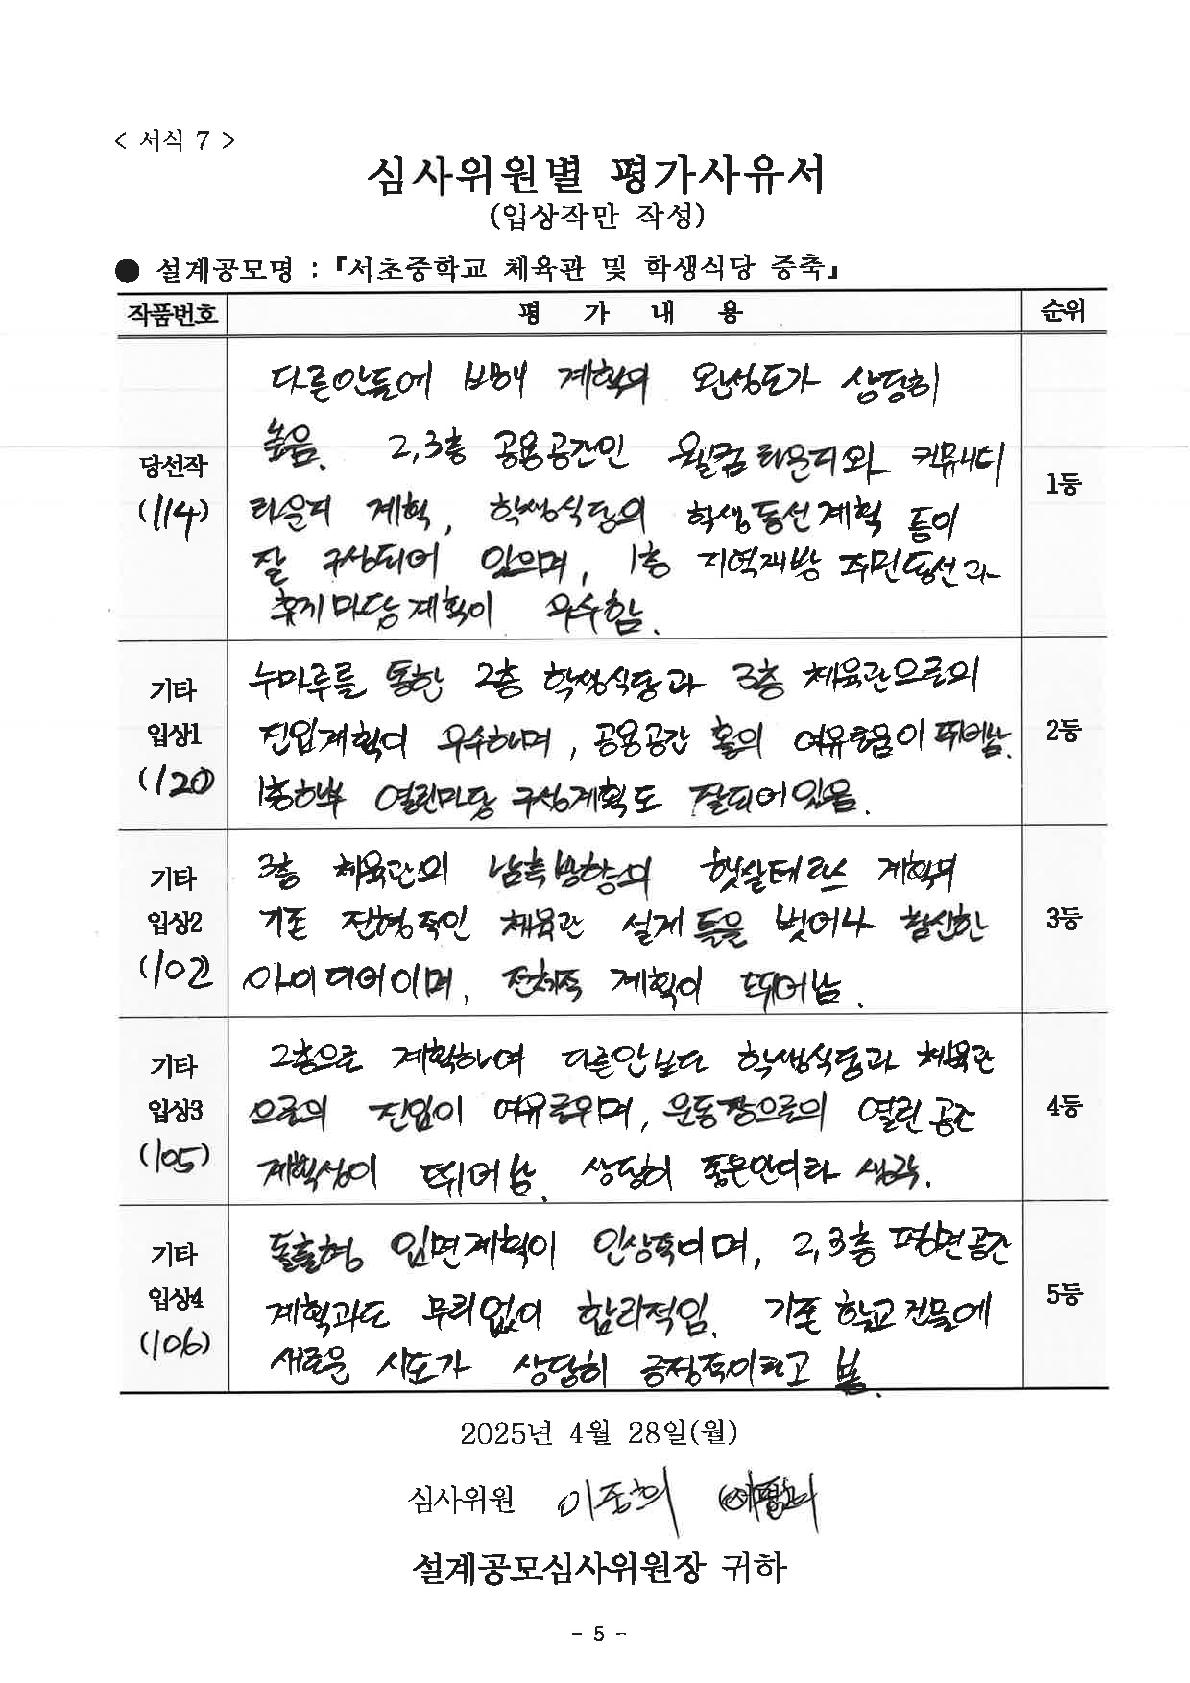 < 서식 7 >
심사위원별 평가사유서
(입상작만 작성)
● 설계공모명 : 『서초중학교 체육관 및 학생식당 증축』
작품번호 평 가 내 용 순위
당선작
(114)
다른안들에 비해 계획의 완성도가 상당히
높음. 2,3층 공용공간인 웰컴라운지와 커뮤니티
라운지 계획, 학생식당의 학생동선계획 등이
잘 구상되어 있으며, 1층 지역개방 주민동선과
휴게마당계획이 우수함.
1등
기타
입상1
(120)
누마루를 통한 2층 학생식당과 3층 체육관으로의
진입계획이 우수하며, 공용공간 홀의 여유로움이 뛰어남.
1층하부 열린마당 구성계획도 잘되어있음.
2등
기타
입상2
(102)
3층 체육관의 남측방향의 햇살테라스 계획의
기존 전형적인 체육관 설계틀을 벗어나 참신한
아이디어이며, 전체적 계획이 뛰어남.
3등
기타
입상3
(105)
2층으로 계획하여 다른안보다 학생식당과 체육관
으로의 진입이 여유로우며, 운동장으로의 열린공간
계획성이 뛰어남. 상당히 좋은안이라 생각.
4등
기타
입상4
(106)
돌출형 입면계획이 인상적이며, 2,3층 평면공간
계획과도 무리없이 합리적임. 기존 학교건물에
새로운 시도가 상당히 긍정적이라고 봄.
5등
2025년 4월 28일(월)
심사위원
설계공모심사위원장 귀하
- 5 -